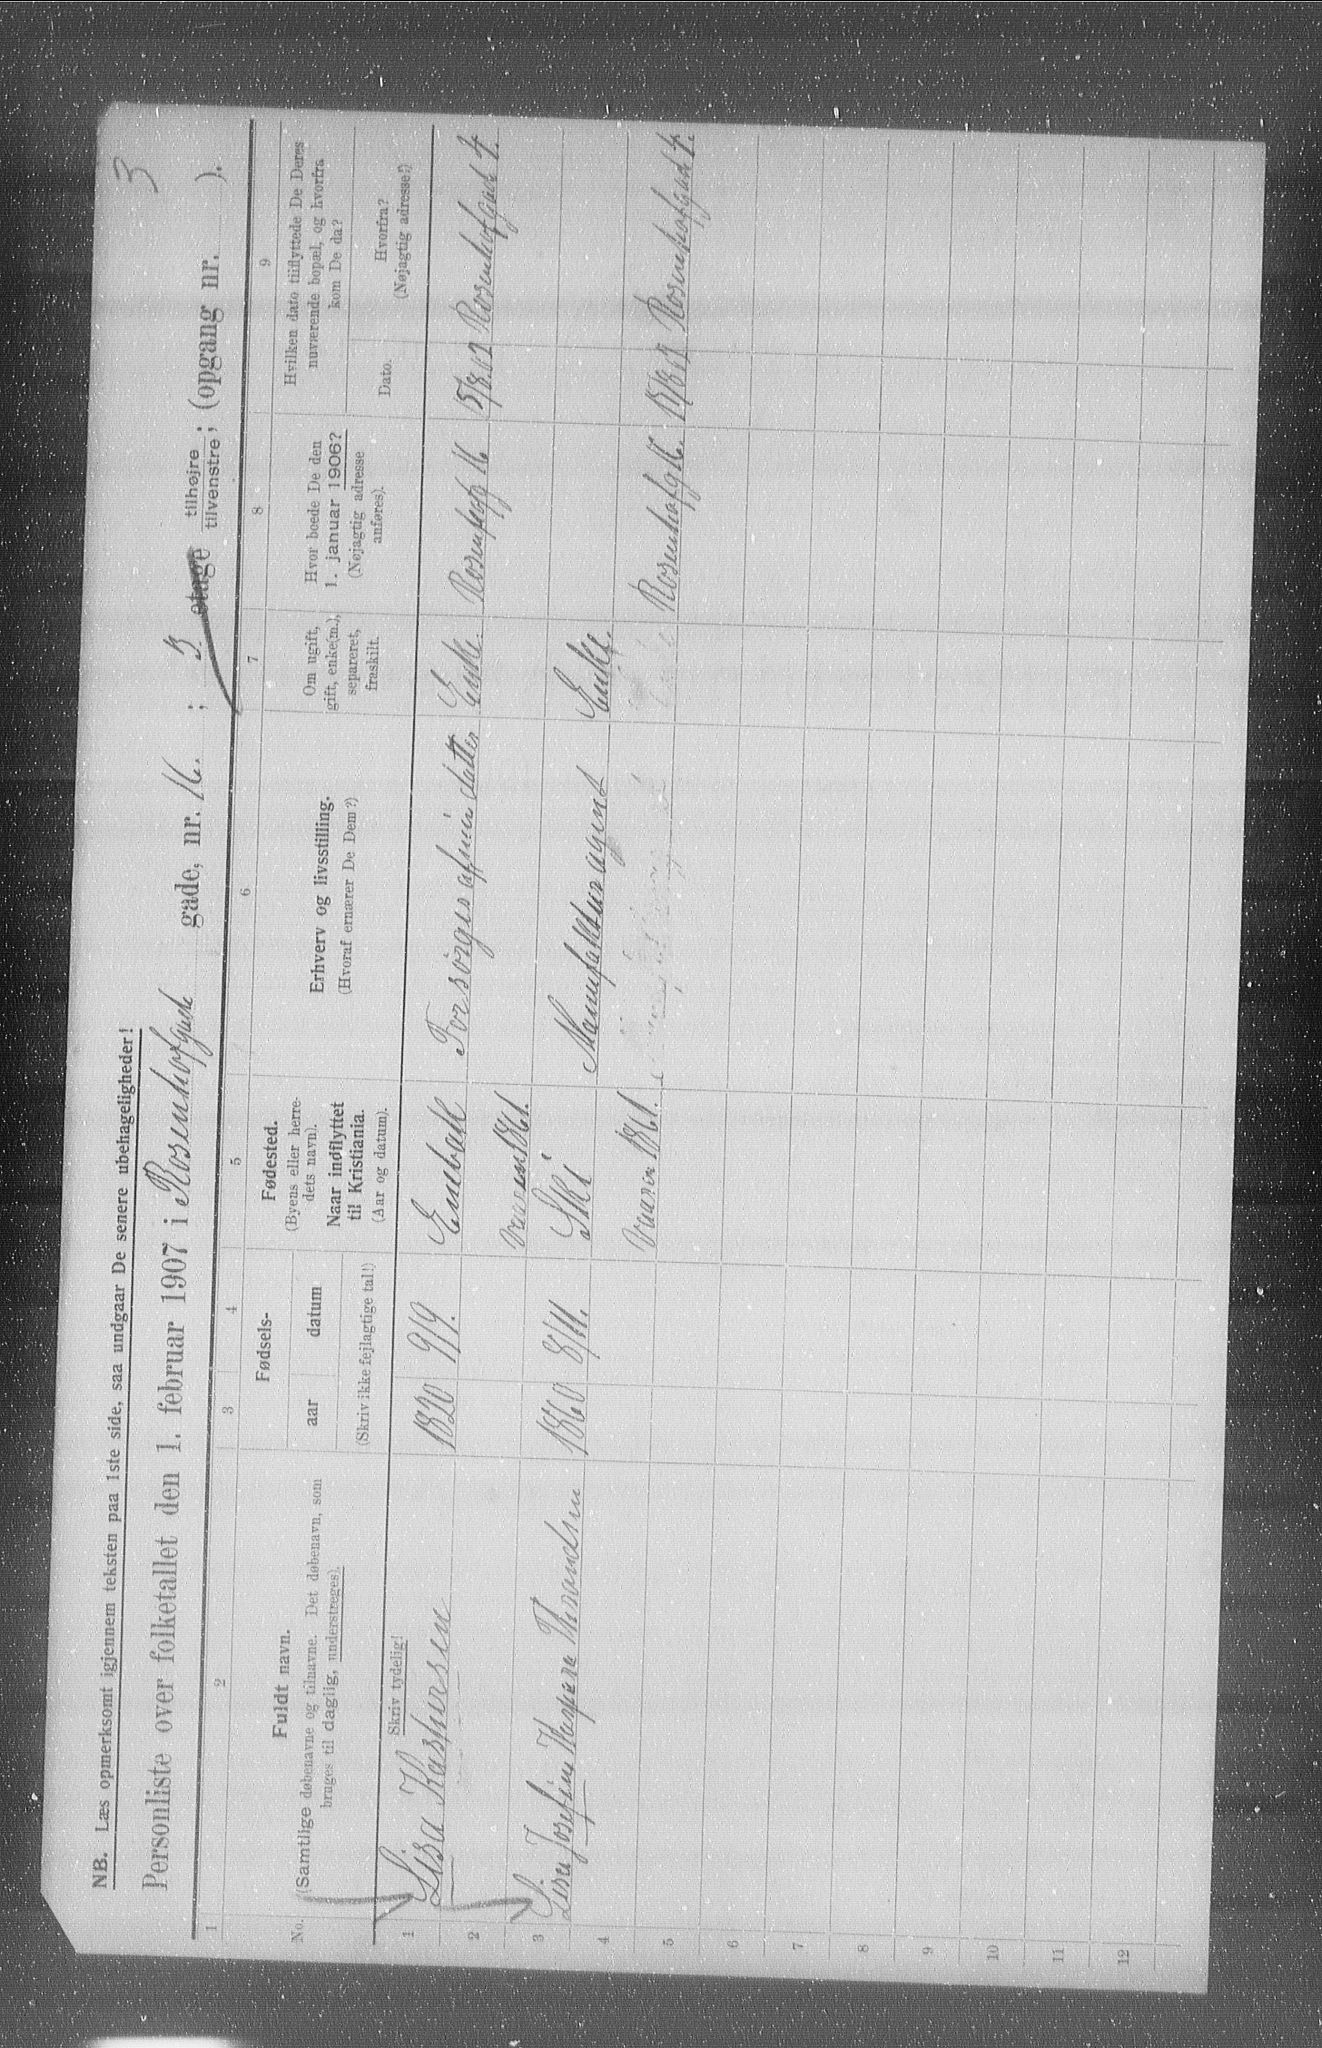 3
NB. Læs opmerksomt igjennem teksten paa 1ste side, saa undgaar De senere ubehageligheder!
Personliste over folketallet den 1. februar 1907 i Rosenhofgade gade, nr. 16. ; 3 etage tilhøjre tilvenstre; (opgang nr. ).
1 2 3 4 5 6 7 8 9
No.
Fuldt navn.
(Samtlige døbenavne og tilnavne. Det døbenavn, som
bruges til daglig, understreges).
Skriv tydelig!
Fødsels-
aar datum
(Skriv ikke fejlagtige tal!)
Fødested.
(Byens eller herre-
dets navn).
Naar indflyttet
til Kristiania.
(Aar og datum).
Erhverv og livsstilling.
(Hvoraf ernærer De Dem?)
Om ugift,
gift, enke(m.),
separeret,
fraskilt.
Hvor boede De den
1. januar 1906?
(Nøjagtig adresse
anføres).
Hvilken dato tilflyttede De Deres
nuværende bopæl, og hvorfra
kom De da?
Dato.
Hvorfra?
(Nøjagtig adresse!)
1 Lisa Kaspersen 1820 9/9. Enebak Forsørges af min datter Enke. Rosenhofg 16 15/8.02 Rosenhofgade 4.
2 Vaaren 1861.
3 Lisa Josefine Kaspara Thrandsen 1860 8/11. Ski Manufakturagent Enke.
4 Vaaren 1861. Rosenhofg 16. 15/8 02 Rosenhofgad 4.
5
6
7
8
9
10
11
12